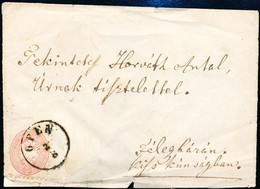 Tekintetes Horváth Antal,
Úrnak tisztelettel.
Félegyházán.
kis kúnságban.
OFEN